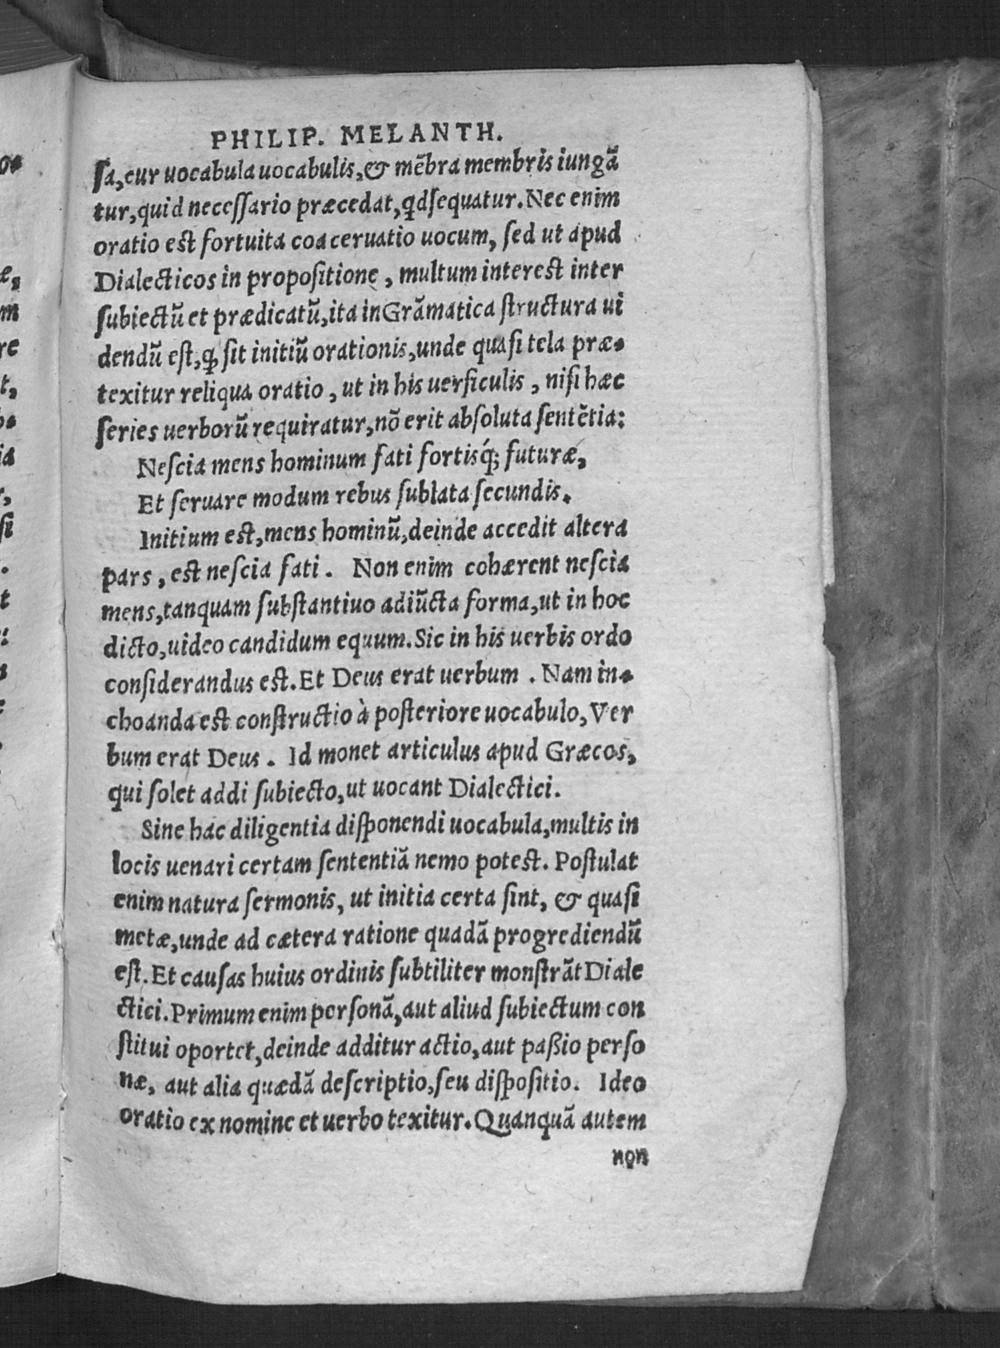 PHILIP. MELANTH.
ſa, cur uocabula uocabulis, & mēbra membris iungā
tur, quid neceſſario præcedat, qd ſequatur. Nec enim
oratio est fortuita coaceruatio uocum, ſed ut apud
Dialecticos in propoſitione, multum interest inter
ſubiectū et prædicatū, ita in Grāmatica ſtructura ui
dendū eſt, ꝙ ſit initiū orationis, unde quaſi tela præ-
texitur reliqua oratio, ut in his uerſiculis, niſi hæc
ſeries uerborū requiratur, nō erit abſoluta ſentētia:
Neſcia mens hominum fati ſortisq́; futuræ,
Et ſeruare modum rebus ſublata ſecundis.
Initium est, mens hominū, deinde accedit altera
pars, est neſcia fati. Non enim cohærent neſcia
mens, tanquam ſubſtantiuo adiūcta forma, ut in hoc
dicto, uideo candidum equum. Sic in his uerbis ordo
conſiderandus est. Et Deus erat uerbum. Nam in-
choanda est conſtructio à poſteriore uocabulo, Ver
bum erat Deus. Id monet articulus apud Græcos,
qui ſolet addi ſubiecto, ut uocant Dialectici.
Sine hac diligentia diſponendi uocabula, multis in
locis uenari certam ſententiā nemo potest. Poſtulat
enim natura ſermonis, ut initia certa ſint, & quaſi
metæ, unde ad cætera ratione quadā progrediendū
eſt. Et cauſas huius ordinis ſubtiliter monſtrāt Diale
ctici. Primum enim perſonā, aut aliud ſubiectum con
ſtitui oportet, deinde additur actio, aut paßio perſo
næ, aut alia quædā deſcriptio, ſeu diſpoſitio. Ideo
oratio ex nomine et uerbo texitur. Quanquā autem
non